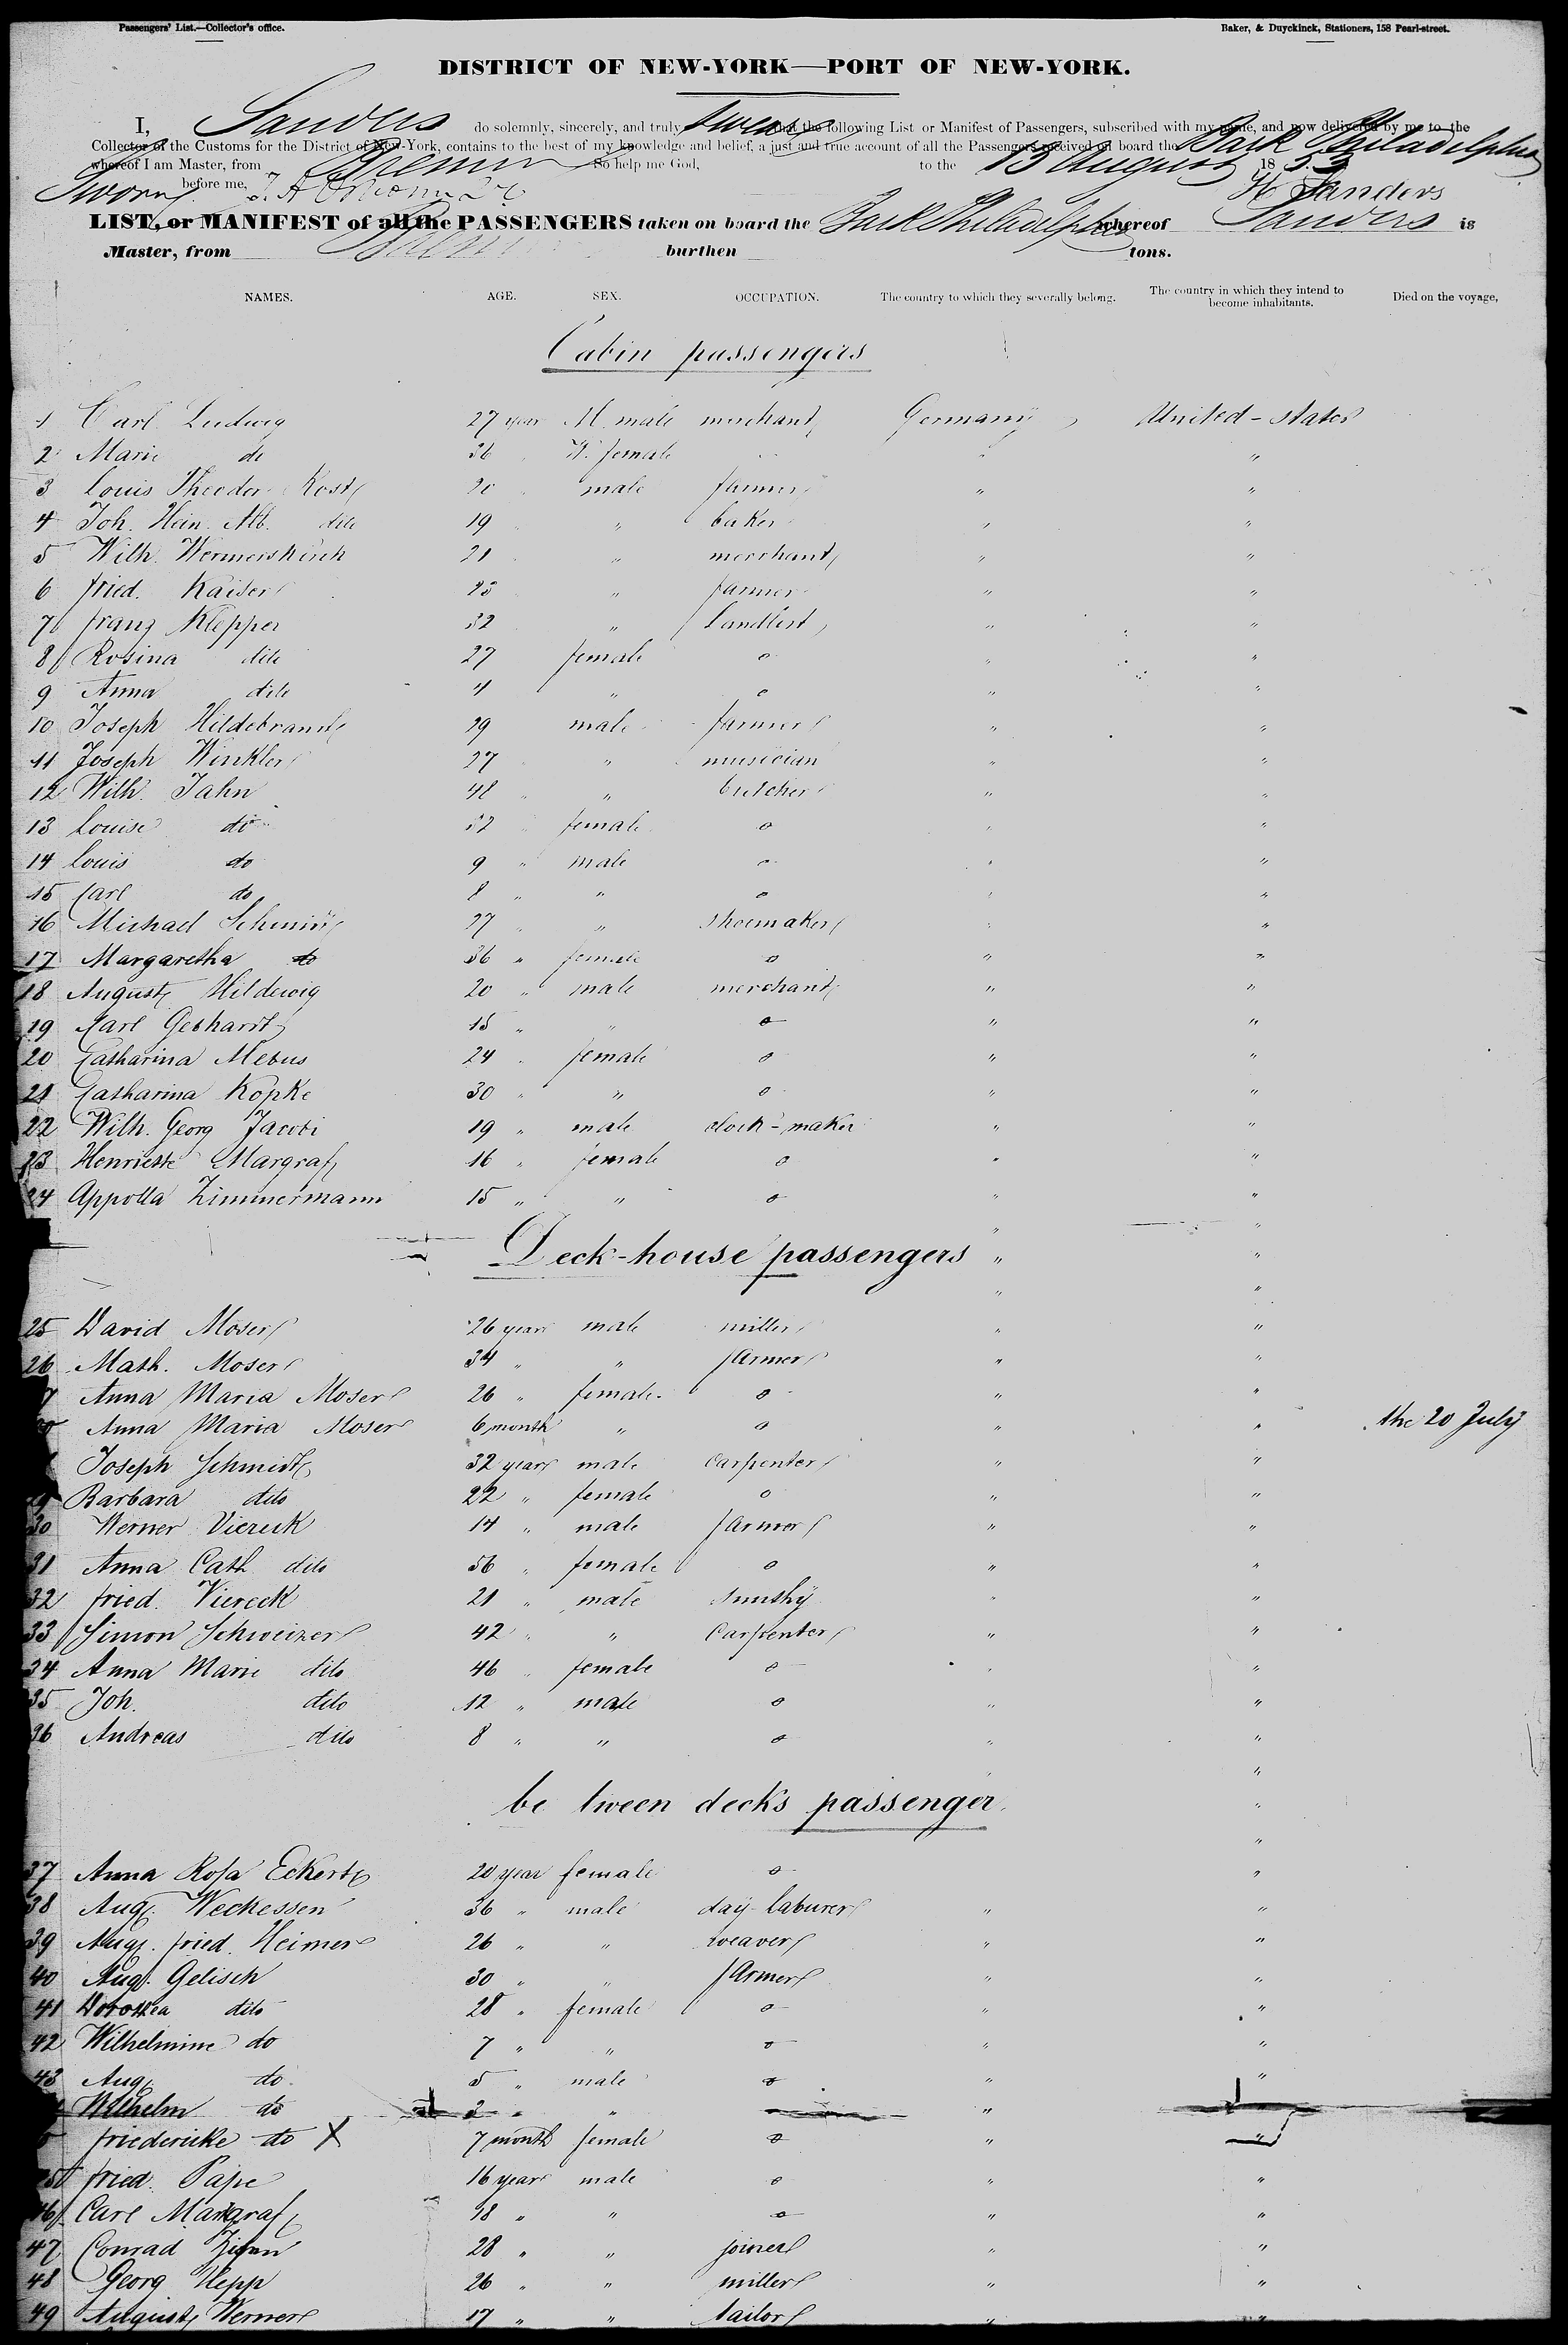 Passengers' List.—Collector's office.
Baker, & Duyckinck, Stationers, 158 Pearl-street.
DISTRICT OF NEW-YORK—PORT OF NEW-YORK.
I, Sanders do solemnly, sincerely, and truly swear that the following List or Manifest of Passengers, subscribed with my name, and now delivered by me to the
Collector of the Customs for the District of New-York, contains to the best of my knowledge and belief, a just and true account of all the Passengers received on board the Bark Philadelphia
whereof I am Master, from Bremen So help me God, to the 13 August 1853
Sworn before me, H Sanders
LIST, or MANIFEST of all the PASSENGERS taken on board the Bark Philadelphia whereof Sanders is
Master, from Bremen burthen tons.
NAMES. AGE. SEX. OCCUPATION. The country to which they severally belong. The country in which they intend to become inhabitants. Died on the voyage,
Cabin passengers
1 Carl Ludwig 27 year M. male merchant Germany United-states
2 Marie do 36 female " "
3 Louis Theodor Kost 20 male farmer " "
4 Joh. Hein. Alb. dito 19 " baker " "
5 Wilh. Wermerskirch 21 " merchant " "
6 fried. Kaiser 25 " farmer " "
7 franz Klepper 32 " " "
8 Rosina dito 27 female o " "
9 Anna dito 4 " o " "
10 Joseph Hildebrand 29 male farmer " "
11 Joseph Winkler 27 " musician " "
12 Wilh. Jahn 48 " butcher " "
13 Louise do 37 female o " "
14 Louis do 9 " male o " "
15 Carl do 8 " " o " "
16 Michael 27 " " shoemaker " "
17 Margaretha do 36 " female o " "
18 August Hildewig 20 " male merchant " "
19 Carl Gebhardt 15 " " o " "
20 Catharina Mebus 24 " female o " "
21 Catharina Kopke 30 " " o " "
22 Wilh. Georg Jacobi 19 " male clock-maker " "
23 Henriette Margraf 16 " female o " "
24 Appolla Zimmermann 15 " " o " "
Deck-house passengers " "
25 David Moser 26 years male miller " "
26 Math. Moser 34 " " farmer " "
7 Anna Maria Moser 26 " female o " "
Anna Maria Moser 6 month " o " " the 20 July
Joseph Schmidt 32 years male carpenter " "
29 Barbara dito 22 " female o " "
30 Werner Viereck 14 " male farmer " "
31 Anna Cath dito 56 " female o " "
32 fried. Viereck 21 " male " "
33 Simon Schweizer 42 " " Carpenter " "
34 Anna Marie dito 46 " female o " "
35 Joh. dito 12 " male o " "
36 Andreas dito 8 " " o " "
be tween decks passenger
37 Anna Rosa Eckert 20 year female o "
38 Aug. Weckessen 36 " male day-laburer " "
39 Aug. fried. Heimer 26 " " weaver " "
40 Aug. Gelisch 30 " " farmer " "
41 Dorothea dito 28 " female o " "
42 Wilhelmine do 7 " " o " "
43 Aug. do 5 " male o " "
Wilhelm do 3 " " " "
friedericke do X 7 month female o " "
fried. Pape 16 years male o " "
46 Carl Margraf 18 " " o " "
47 Conrad 28 " " joiner " "
48 Georg Hepp 26 " " miller " "
49 August Werner 17 " " tailor " "